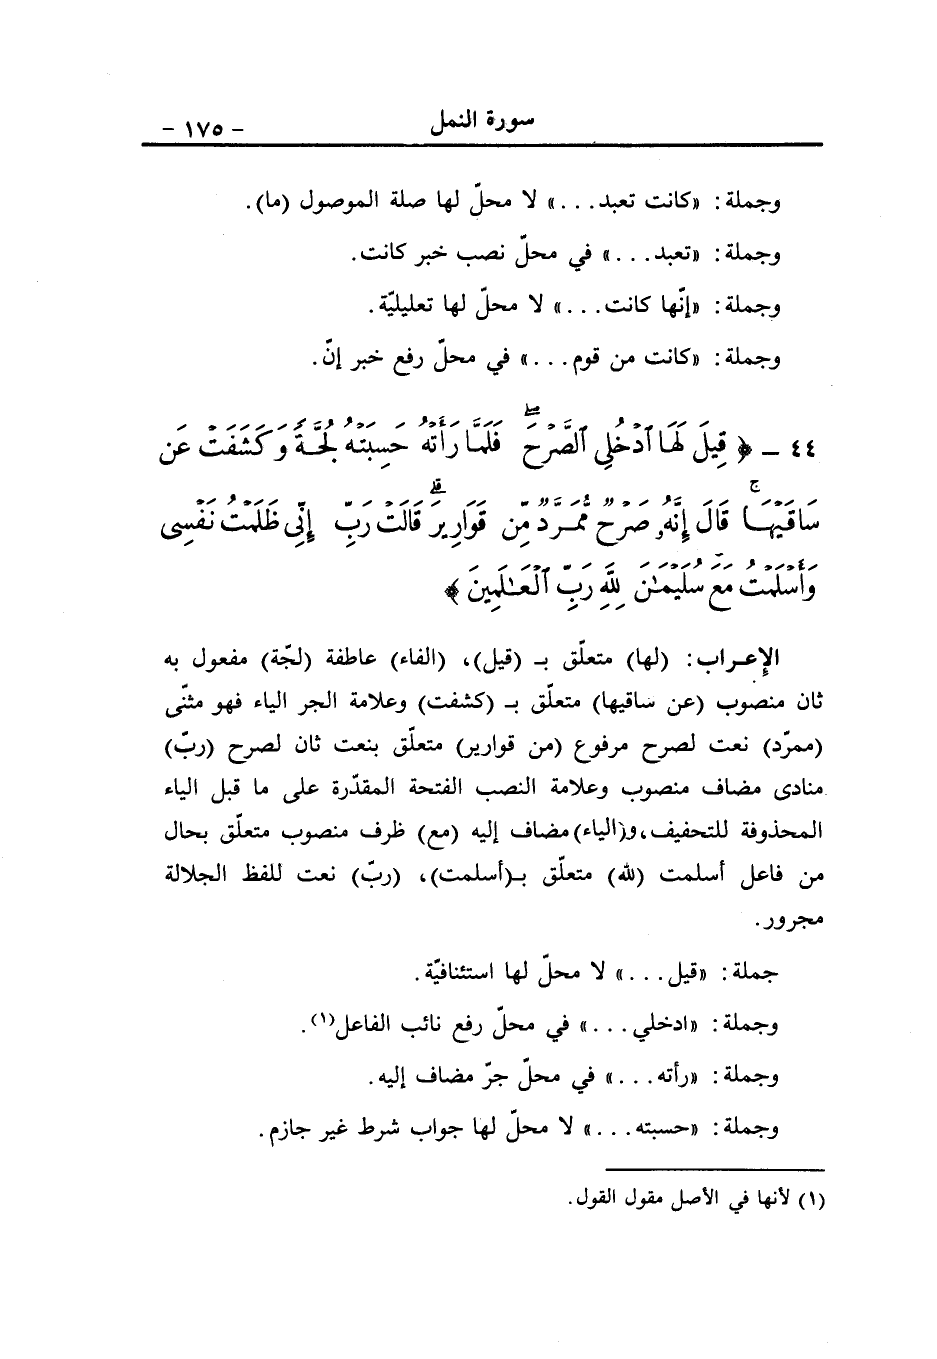 سورة النمل - ١٧٥ -
وجملة: «كانت تعبد...» لا محلّ لها صلة الموصول (ما).
وجملة: «تعبد...» في محلّ نصب خبر كانت.
وجملة: «إنّها كانت...» لا محلّ لها تعليليّة.
وجملة: «كانت من قوم...» في محلّ رفع خبر إنّ.
٤٤ - ﴿ قِيلَ لَهَا ٱدْخُلِي ٱلصَّرْحَ ۖ فَلَمَّا رَأَتْهُ حَسِبَتْهُ لُجَّةً وَكَشَفَتْ عَن
سَاقَيْهَا ۚ قَالَ إِنَّهُۥ صَرْحٌ مُّمَرَّدٌ مِّن قَوَارِيرَ ۗ قَالَتْ رَبِّ إِنِّي ظَلَمْتُ نَفْسِي
وَأَسْلَمْتُ مَعَ سُلَيْمَـٰنَ لِلَّهِ رَبِّ ٱلْعَـٰلَمِينَ ﴾
الإعراب: (لها) متعلّق بـ (قيل)، (الفاء) عاطفة (لجّة) مفعول به
ثان منصوب (عن ساقيها) متعلّق بـ (كشفت) وعلامة الجر الياء فهو مثنّى
(ممرّد) نعت لصرح مرفوع (من قوارير) متعلّق بنعت ثان لصرح (ربّ)
منادى مضاف منصوب وعلامة النصب الفتحة المقدّرة على ما قبل الياء
المحذوفة للتخفيف، و(الياء) مضاف إليه (مع) ظرف منصوب متعلّق بحال
من فاعل أسلمت (لله) متعلّق بـ(أسلمت)، (ربّ) نعت للفظ الجلالة
مجرور.
جملة: «قيل...» لا محلّ لها استئنافيّة.
وجملة: «ادخلي...» في محلّ رفع نائب الفاعل(١).
وجملة: «رأته...» في محلّ جرّ مضاف إليه.
وجملة: «حسبته...» لا محلّ لها جواب شرط غير جازم.
(١) لأنها في الأصل مقول القول.